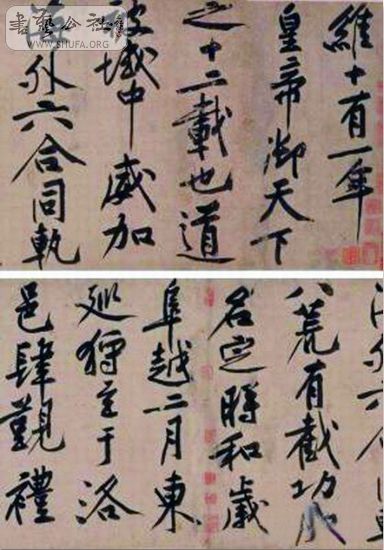 書藝公社
WWW.SHUFA.ORG
維十有一年
皇帝御天下
之十二載也道
被域中威加
海外六合同軌
八荒有截功成
名定時和歲
阜越二月東
巡狩至于洛
邑肆覲禮